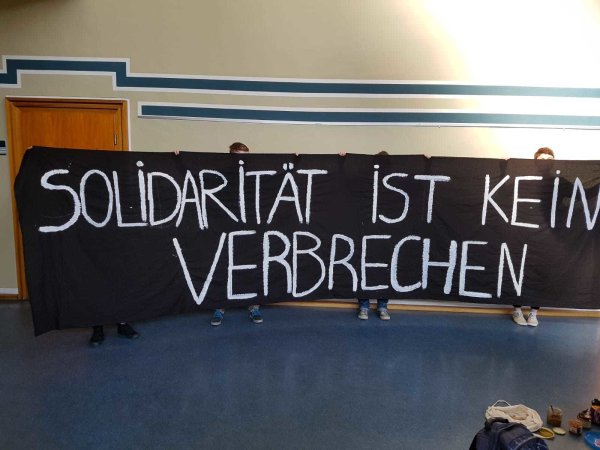 SOLIDARITÄT IST KEIN
VERBRECHEN